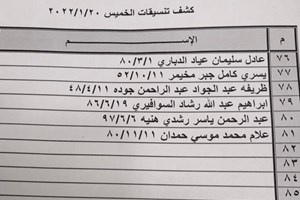 كشف تنسيقات الخميس ٢٠٢٢/١/٢٠
م الإســـــــــم
٧٦ عادل سليمان عياد الدباري ٨٠/٣/١
٧٧ يسري كامل جبر مخيمر ٥٢/١٠/١١
٧٨ ظريفه عبد الجواد عبد الراحمن جوده ٤٨/٤/١١
٧٩ ابراهيم عبد الله رشاد السوافيري ٨٦/٦/١٩
٨٠ عبد الرحمن ياسر رشدي هنيه ٩٧/٦/٦
٨١ علام محمد موسي حمدان ٨٠/١١/١١
٨٢
٨٣
٨٤
٨٥